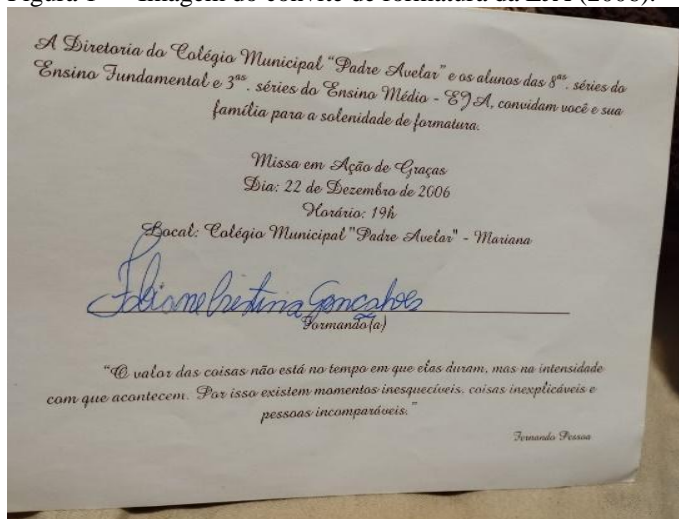 A Diretoria do Colégio Municipal "Padre Avelar" e os alunos das 8ªs. séries do
Ensino Fundamental e 3ªs. séries do Ensino Médio - EJA, convidam você e sua
família para a solenidade de formatura.
Missa em Ação de Graças
Dia: 22 de Dezembro de 2006
Horário: 19h
Local: Colégio Municipal "Padre Avelar" - Mariana
Fabiane Cristina Gonçalves
Formando(a)
"O valor das coisas não está no tempo em que elas duram, mas na intensidade
com que acontecem. Por isso existem momentos inesquecíveis, coisas inexplicáveis e
pessoas incomparáveis."
Fernando Pessoa